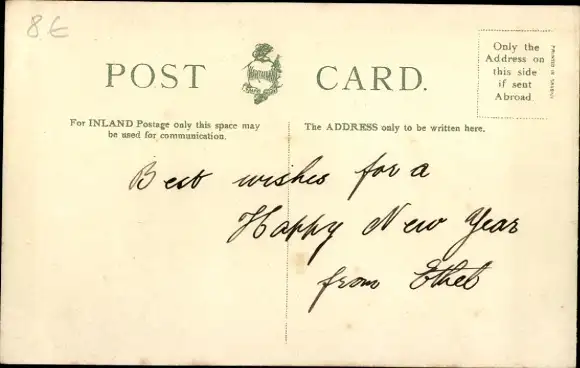 8€
POST CARD.
Only the
Address on
this side
if sent
Abroad
For INLAND Postage only this space may
be used for communication.
The ADDRESS only to be written here.
Best wishes for a
Happy New Year
from Ethel